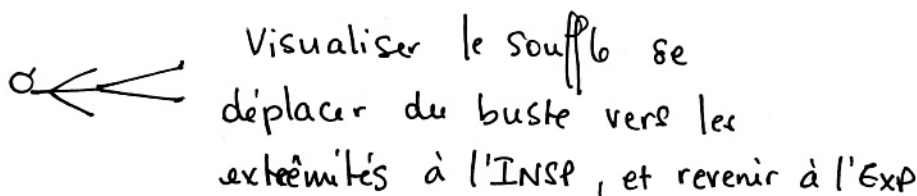 Visualiser le souffle se
déplacer du buste vers les
extrêmités à l'INSP, et revenir à l'EXP